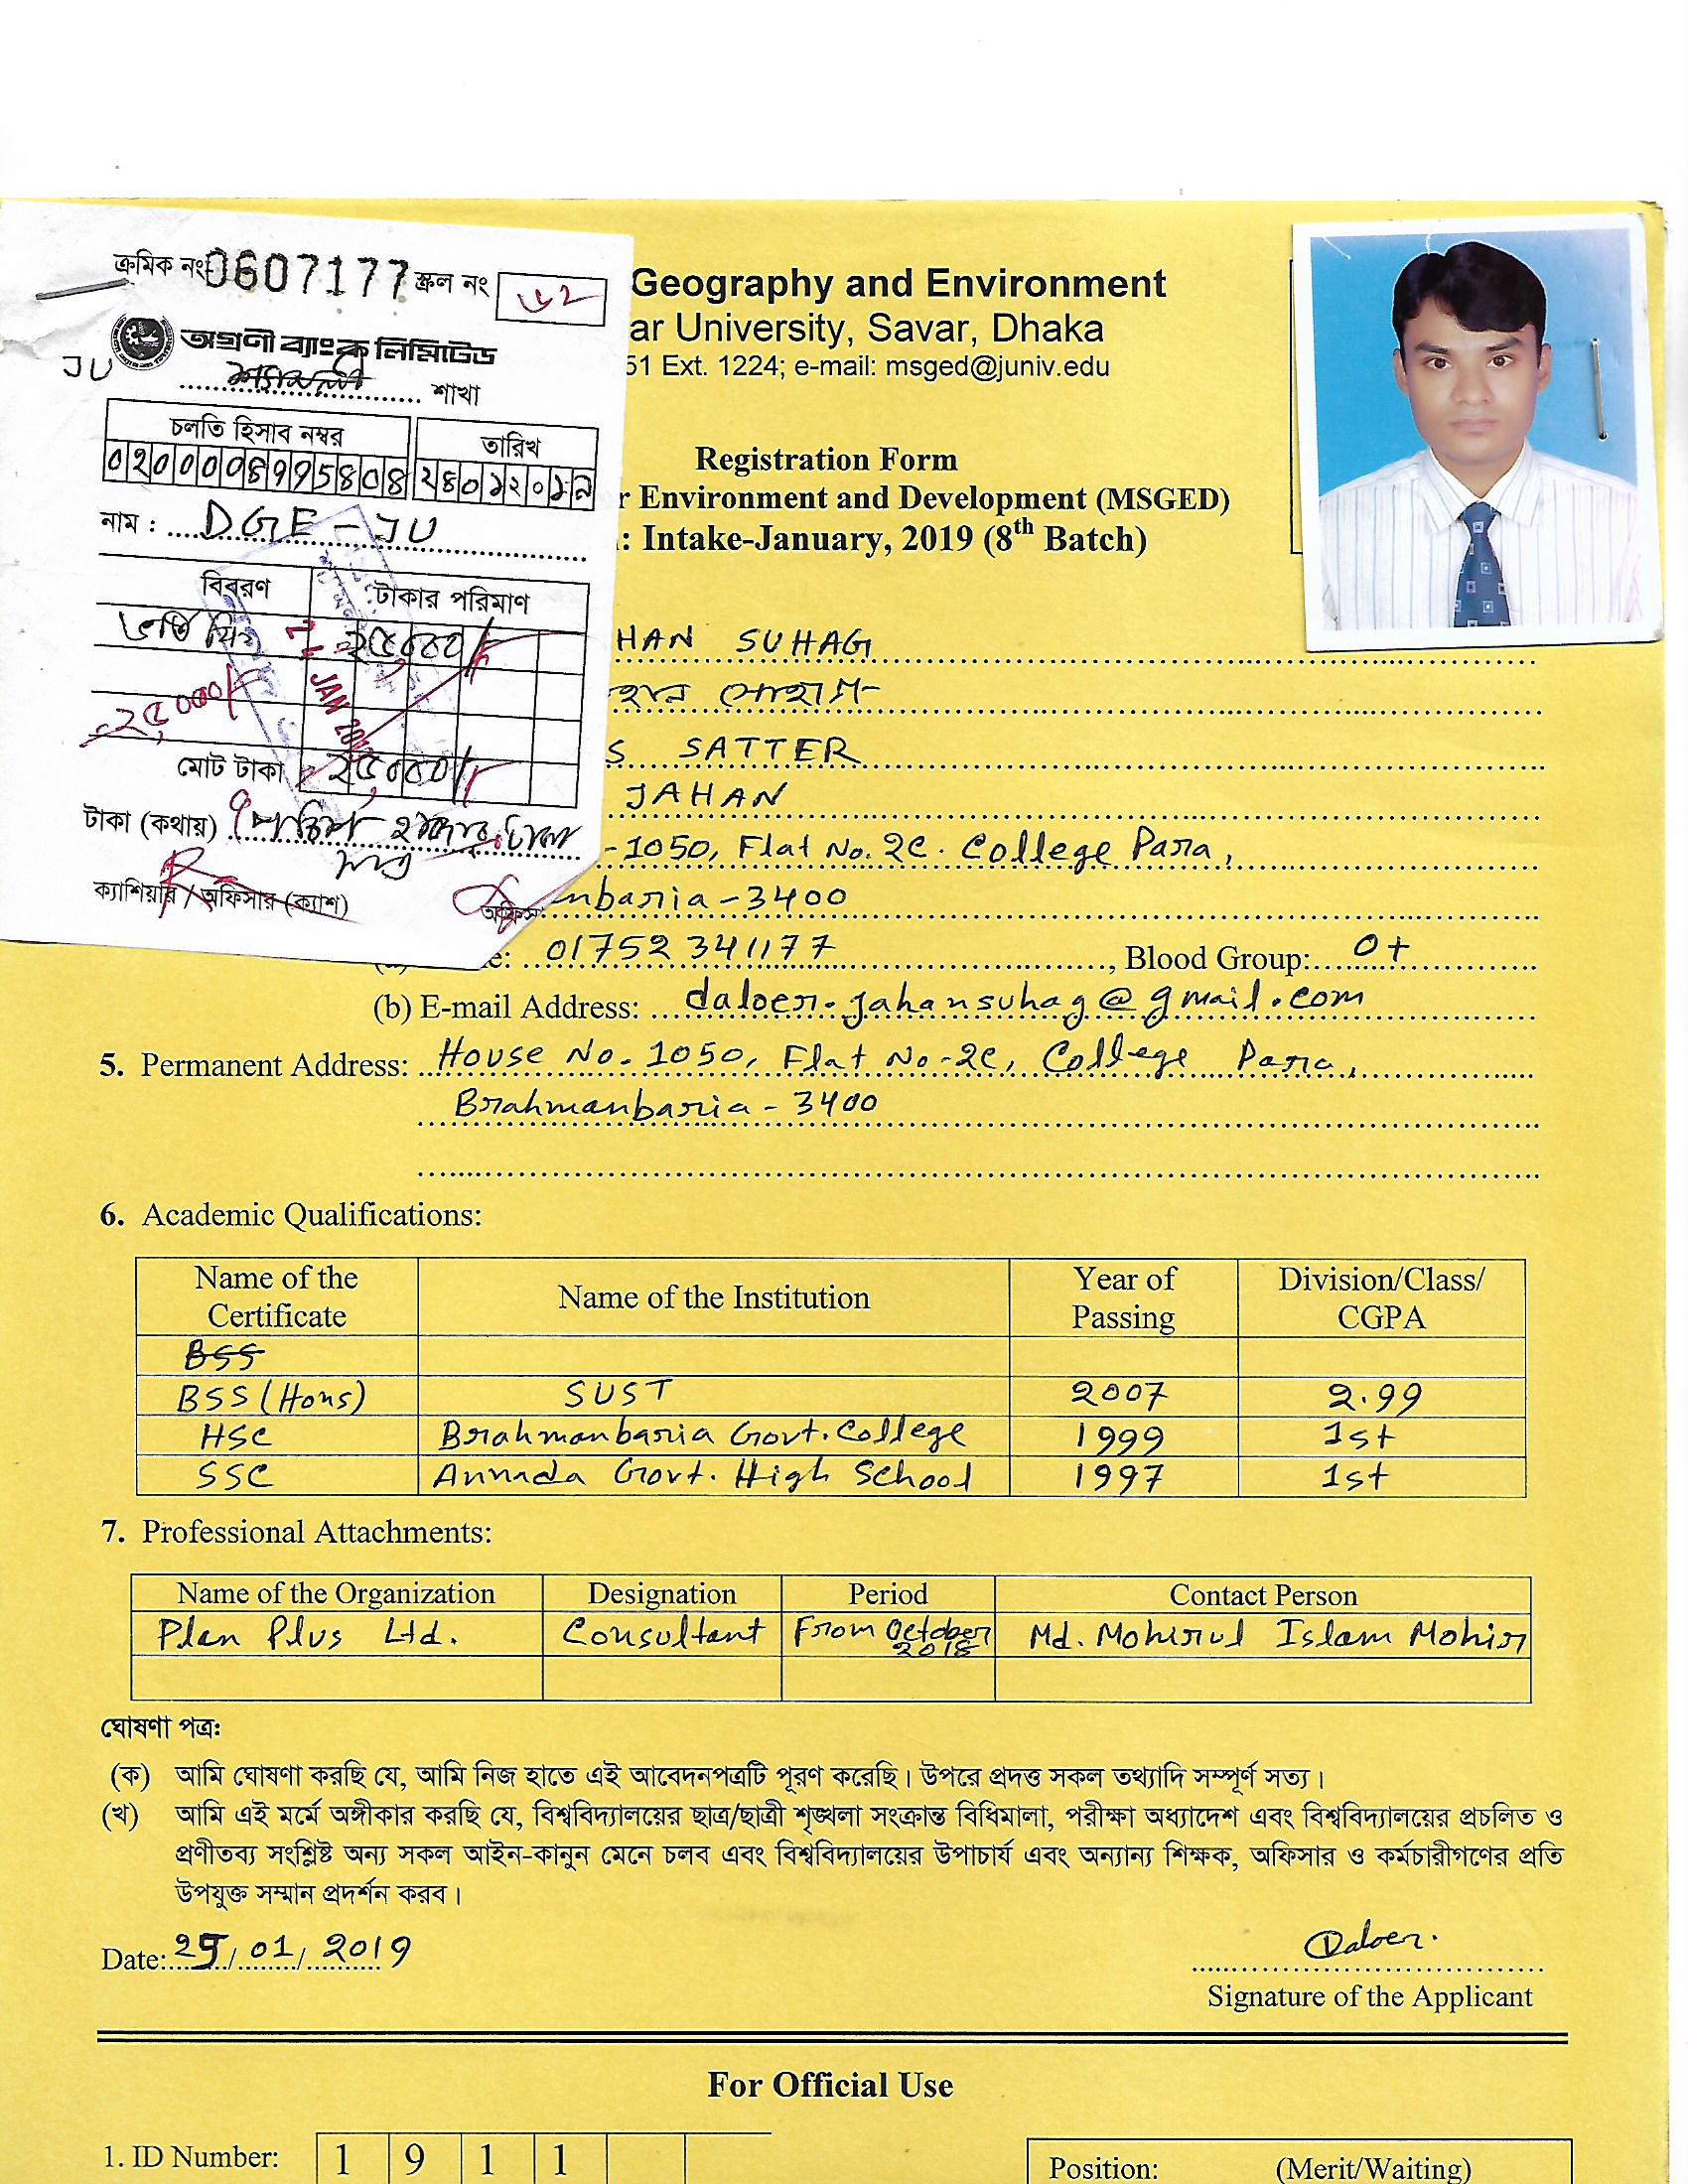 ক্রমিক নং 0607177 স্ক্রল নং ৩২
অগ্রণী ব্যাংক লিমিটেড
JU
শাখা
চলতি হিসাব নম্বর তারিখ
নাম : DGE - JU
বিবরণ টাকার পরিমাণ
ভর্তি ফি ২৫,০০০/-
২৫,০০০/-
JAN
মোট টাকা ২৫,০০০/-
টাকা (কথায়) পঁচিশ হাজার টাকা
ক্যাশিয়ার / অফিসার (ক্যাশ) অফিসার
Geography and Environment
ar University, Savar, Dhaka
51 Ext. 1224; e-mail: msged@juniv.edu
Registration Form
r Environment and Development (MSGED)
: Intake-January, 2019 (8th Batch)
HAN SUHAG
হান সোহাগ
S SATTER
JAHAN
-1050, Flat No. 2C. College Para,
nbaria - 3400
e: 01752 341177, Blood Group: O+
(b) E-mail Address: daloer.jahansuhag@gmail.com
5. Permanent Address: House No. 1050, Flat No-2C, College Para,
Brahmanbaria - 3400
6. Academic Qualifications:
Name of the Certificate Name of the Institution Year of Passing Division/Class/ CGPA
BSS
BSS (Hons) SUST 2007 2.99
HSC Brahmanbaria Govt. College 1999 1st
SSC Annada Govt. High School 1997 1st
7. Professional Attachments:
Name of the Organization Designation Period Contact Person
Plan Plus Ltd. Consultant From October 2018 Md. Mohirul Islam Mohir
ঘোষণা পত্র:
(ক) আমি ঘোষণা করছি যে, আমি নিজ হাতে এই আবেদনপত্রটি পূরণ করেছি। উপরে প্রদত্ত সকল তথ্যাদি সম্পূর্ণ সত্য।
(খ) আমি এই মর্মে অঙ্গীকার করছি যে, বিশ্ববিদ্যালয়ের ছাত্র/ছাত্রী শৃঙ্খলা সংক্রান্ত বিধিমালা, পরীক্ষা অধ্যাদেশ এবং বিশ্ববিদ্যালয়ের প্রচলিত ও
প্রণীতব্য সংশ্লিষ্ট অন্য সকল আইন-কানুন মেনে চলব এবং বিশ্ববিদ্যালয়ের উপাচার্য এবং অন্যান্য শিক্ষক, অফিসার ও কর্মচারীগণের প্রতি
উপযুক্ত সম্মান প্রদর্শন করব।
Date: 25/01/2019
Daloer.
Signature of the Applicant
For Official Use
1. ID Number: 1 9 1 1
Position: (Merit/Waiting)